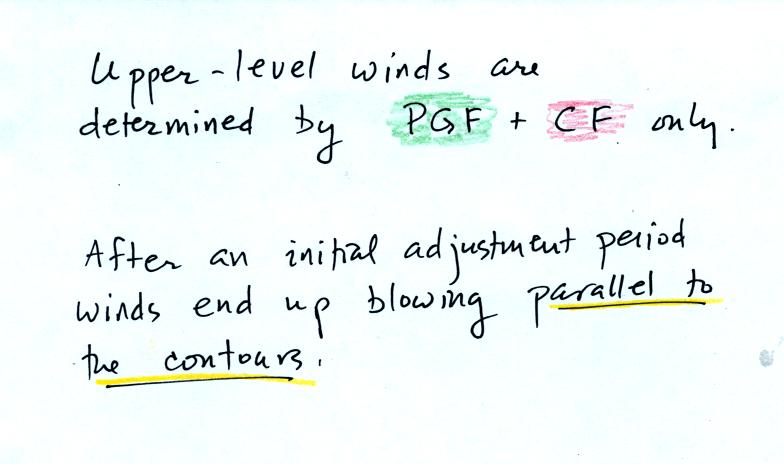 Upper-level winds are
determined by PGF + CF only.
After an initial adjustment period
winds end up blowing parallel to
the contours.